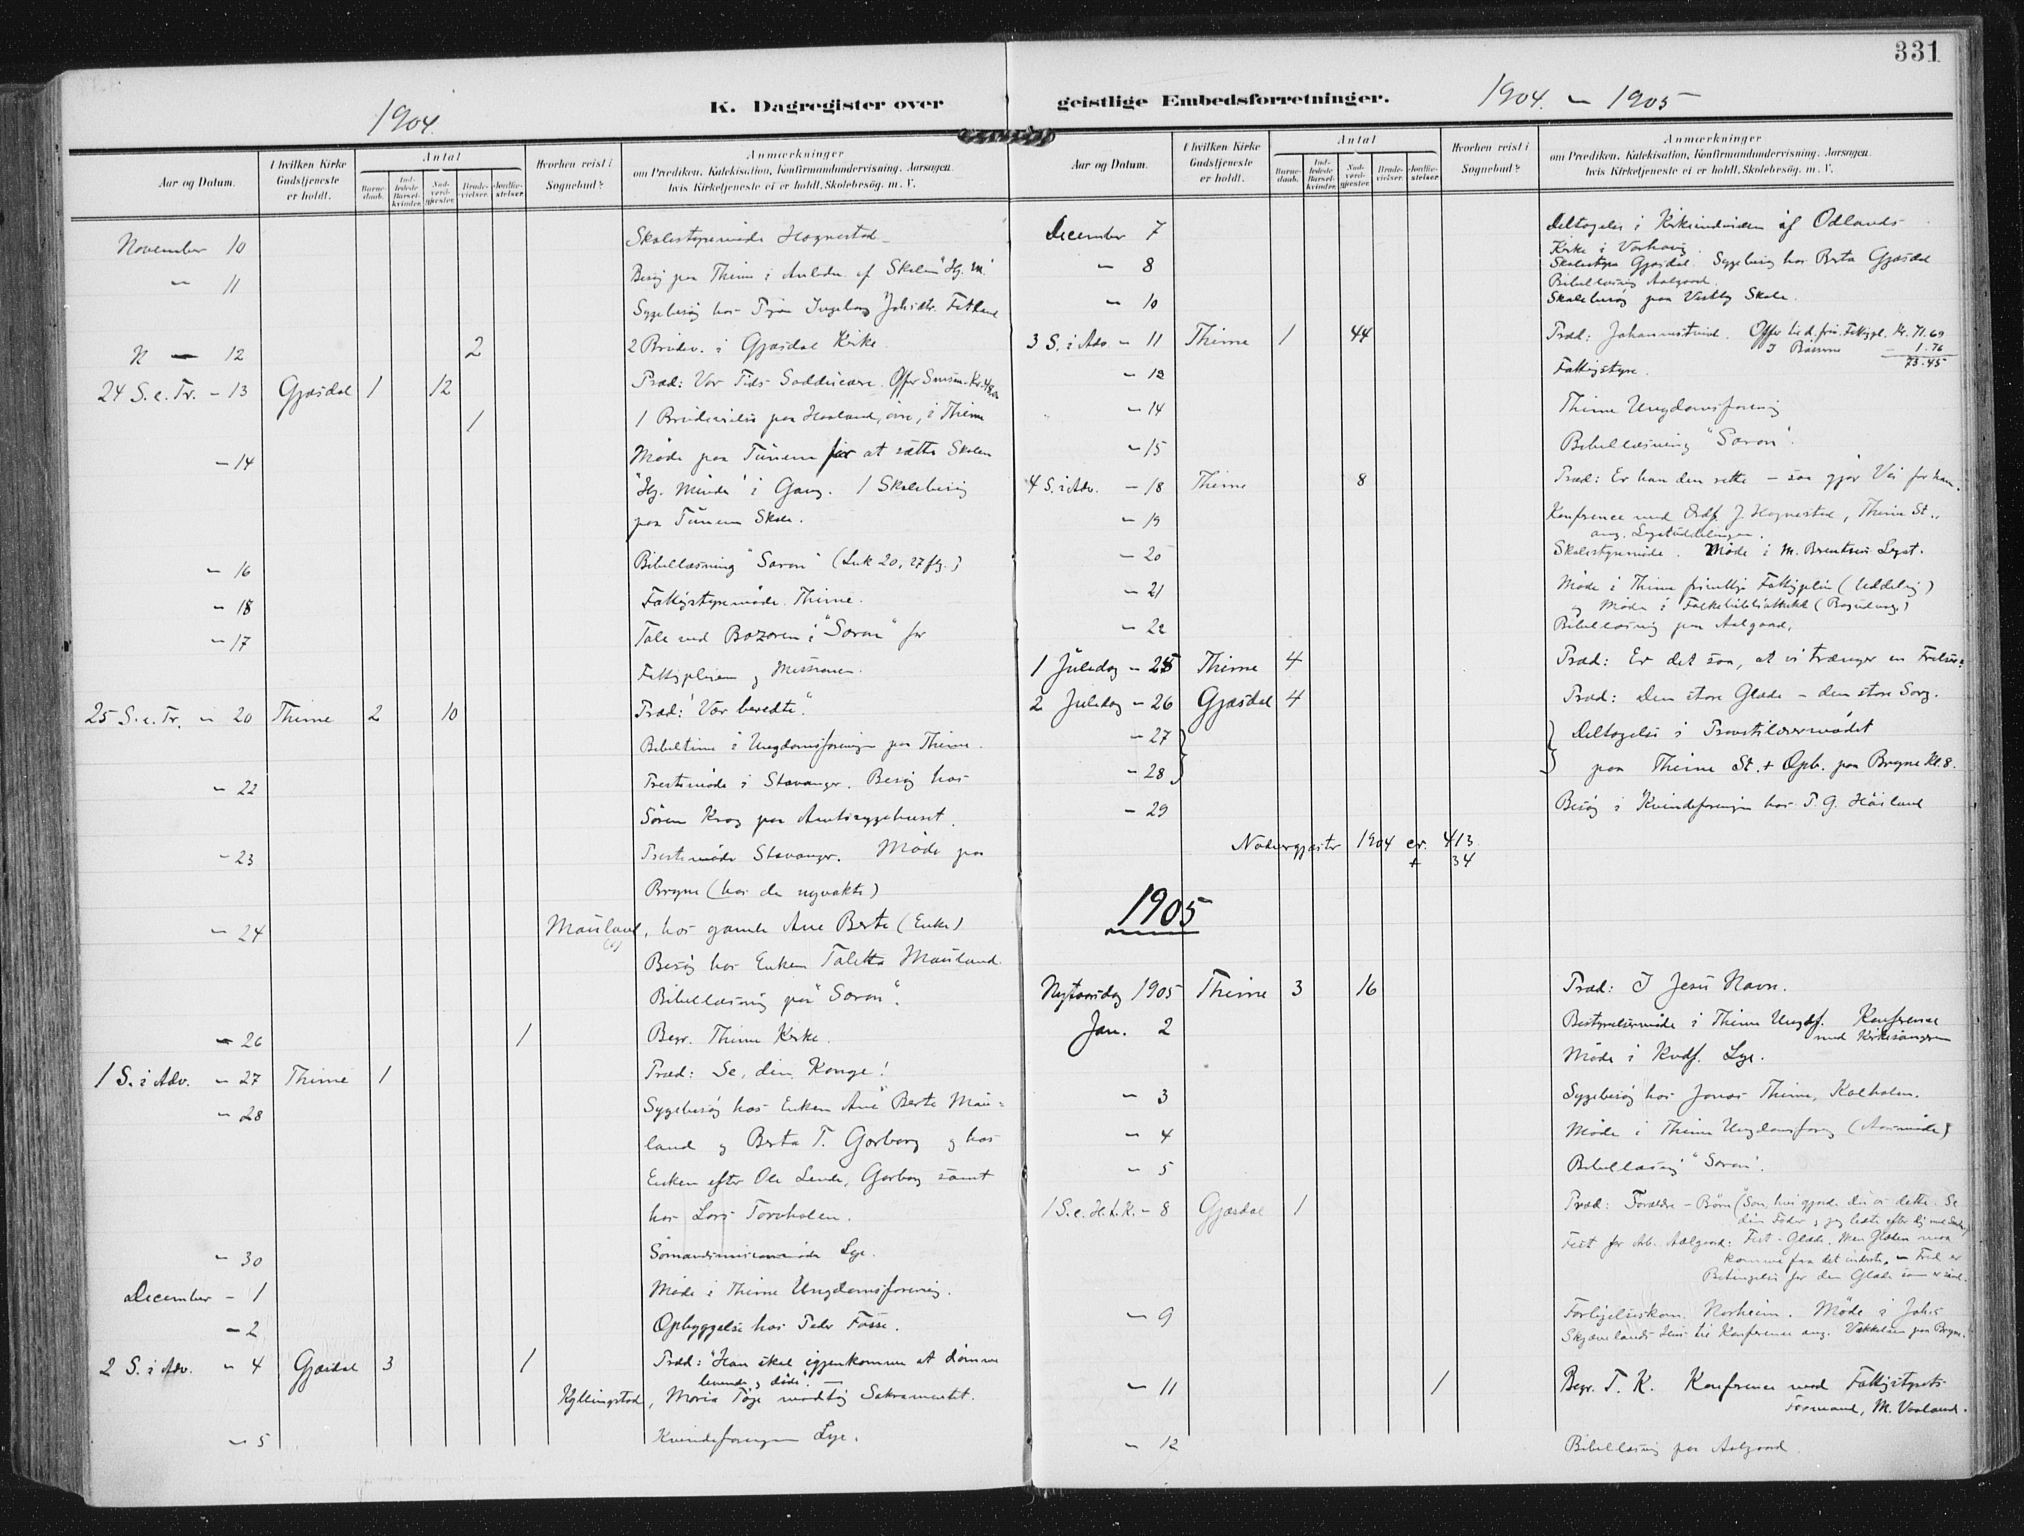 331
1904.
K. Dagregister over
Aar og Datum.
I hvilken Kirke Gudstjeneste er holdt.
Antal
Barnedaab.
Indledede Barselkvinder.
Nadverdgjester.
Brudevielser.
Jordfæstelser.
Hvorhen reist i Sognebud?
Anmærkninger
om Prædiken, Katekisation, Konfirmandundervisning, Aarsagen,
hvis Kirketjeneste ei er holdt, Skolebesøg, m. V.
November 10 Skolestyremøde Hognestad
" 11 Besøg paa Thime i Anledn. af Skolen "Hj. M."
Sygebesøg hos Ingeborg Fotland
" 12 2 2 Brudev. i Gjæsdal Kirke.
24 S. e. Tr. " 13 Gjæsdal 1 12 Præd: Vor Tids Sadducæere. Offer
1 1 Brudevielse paa Haaland, øvre, i Thime
" 14 Møde paa Tunem for at sætte Skolen
"Hj. Minde" i Gang. 1 Skolebesøg
paa Tunem Skole.
" 16 Bibellæsning "Saron" (Luk 20, 27 flg.)
" 18 Fattigstyremøde. Thime.
" 17 Tale ved Bazaren i "Saron" for
Fattigpleien og Missionen.
25 S. e. Tr. " 20 Thime 2 10 Præd: "Vær beredte".
Bibeltime i Ungdomsforeningen paa Thime.
" 22 Prestemøde i Stavanger. Besøg hos
Sören Krog paa Amtssygehuset.
" 23 Prestemøde Stavanger. Møde paa
Bryne (hos de nyvakte)
" 24 Mauland, hos gamle Ane Berte (Enke)
Besøg hos Enken Taletta Mauland.
Bibellæsning paa "Saron".
" 26 1 Begr. Thime Kirke.
1 S. i Adv. " 27 Thime 1 Præd: Se, din Konge!
" 28 Sygebesøg hos Enken Ane Berte Mau=
land og Berta T. Garborg og hos
Enken efter Ole Lende, Garborg samt
hos Lars Torvholen.
" 30 Sømandsmissionsmøde Lye.
December " 1 Møde i Thime Ungdomsforening.
" 2 Opbyggelse hos Peder Fosse.
2 S. i Adv. " 4 Gjæsdal 3 1 Præd: "Han skal igjenkomme at dømme
levende og døde".
Kyllingstad, Maria Töge modtog Sakramentet.
" 5 Kvindeforeningen Lye.
geistlige Embedsforretninger.
1904. - 1905
Aar og Datum.
I hvilken Kirke Gudstjeneste er holdt.
Antal
Barnedaab.
Indledede Barselkvinder.
Nadverdgjester.
Brudevielser.
Jordfæstelser.
Hvorhen reist i Sognebud?
Anmærkninger
om Prædiken, Katekisation, Konfirmandundervisning, Aarsagen,
hvis Kirketjeneste ei er holdt, Skolebesøg, m. V.
December 7 Deltagelse i Kirkeindvielsen af Ødlands
Kirke i Varhoug.
" 8 Skolestyre Gjæsdal. Sygebesøg hos Berta Gjæsdal
Bibellæsning Aalgaard.
" 10 Skolebesøg paa Vestly Skole.
3 S. i Adv. " 11 Thime 1 44 Præd: Offer til d. friv. Fattigpl. Kr. 71.69
I Bössene 1.76
73.45
" 12 Fattigstyre.
" 14 Thime Ungdomsforening
" 15 Bibellæsning "Saron".
4 S. i Adv. " 18 Thime 8 Præd: Er han den rette - saa gjør Vei for ham.
" 19 Konference med Ordf. J. Hognestad, Thime St.,
ang. Legatuddelingen.
" 20 Skolestyremøde. Møde i M. Brentsens Legat.
" 21 Møde i Thime frivillige Fattigpleie (Uddeling)
og Møde i Folkebibliotheket
" 22 Bibellæsning paa Aalgaard.
1 Juledag " 25 Thime 4 Præd: Er det saa, at vi trænger en Frelser?
2 Juledag " 26 Gjæsdal 4 Præd: Den store Glæde - den store Sorg.
" 27 Deltagelse i Provstilærermødet
" 28 paa Thime St. + Opb. paa Bryne Kl. 8.
" 29 Besøg i Kvindeforeningen hos T. G. Höiland
Nadvergjester 1904 er. 413
+ 34
1905
Nytaarsdag 1905 Thime 3 16 Præd: I Jesu Navn.
Jan. 2 Bestyrelsesmøde i Thime Ungdf. Konference
med Kirkesangeren
Møde i Kvdf. Lye.
" 3 Sygebesøg hos Jonas Thime, Kalholen.
" 4 Møde i Thime Ungdomsforening (Aarsmøde)
" 5 Bibellæsning "Saron".
1 S. e. H. t. K. " 8 Gjæsdal 1 Præd: Forældre - Børn (Søn, hvi gjorde du os dette. Se
din Fader og jeg ledte efter dig med Smerte)
Fest for Arb. Aalgaard: Fest - Glæde. Men Glæden maa
komme fra det inderste, - Fred er
Betingelse for den Glæde som er sand.
" 9 Forligelseskom. Norheim. Møde i Johs
Skjævelands Hus til Konference ang. Vækkelsen paa Bryne.
" 11 1 Begr. T. K. Konference med Fattigstyrets
Formand, M. Vaaland.
" 12 Bibellæsning paa Aalgaard.